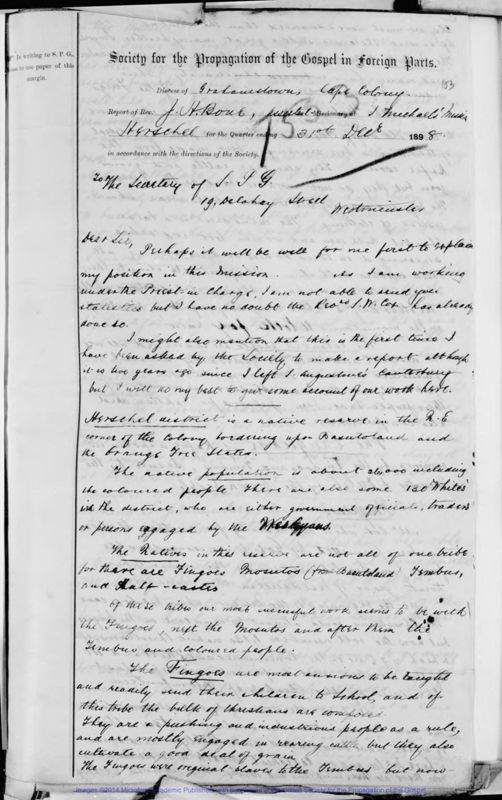 In writing to S. P. G.,
to use paper of this
margin.
Society for the Propagation of the Gospel in Foreign Parts.
153
Diocese of Grahamstown, Cape Colony
Report of Rev. J. A. Missionary at S. Michael's Mission
Herschel for the Quarter ending 31st Decr 1898.
in accordance with the directions of the Society.
To The Secretary of S. P. G.
19, Delahay Street
Westminster
Dear Sir,
Perhaps it will be well for me first to explain
my position in this Mission. As I am working
under the Priest in Charge, I am not able to send you
statistics but I have no doubt the Revd. W. Cox has already
done so.
I might also mention that this is the first time I
have been asked by the Society to make a report although
it is five years ago since I left S. Augustine's Canterbury
but I will do my best to give some account of our work here.
Herschel district is a native reserve in the N. E
corner of the Colony bordering upon Basutoland and
the Orange Free State.
The native population is about including
the coloured people There are also some 130 Whites
in the district, who are either government officials, traders
or persons engaged by the Wesleyans.
The Natives in this reserve are not all of one tribe
for there are Fingoes Mosutos (from Basutoland) Tembus,
and Half-castes
Of these tribes our most successful work seems to be with
the Fingoes, next the Mosutos and after them the
Tembus and coloured people.
The Fingoes are most anxious to be taught
and readily send their children to School, and of
this tribe the bulk of Christians are composed
They are a pushing and industrious people as a rule,
and are mostly engaged in rearing cattle, but they also
cultivate a good deal of grain
The Fingoes were original slaves to the Tembus but now
Images ©2014 Microform Academic Publishers with permission of the United Society for the Propagation of the Gospel